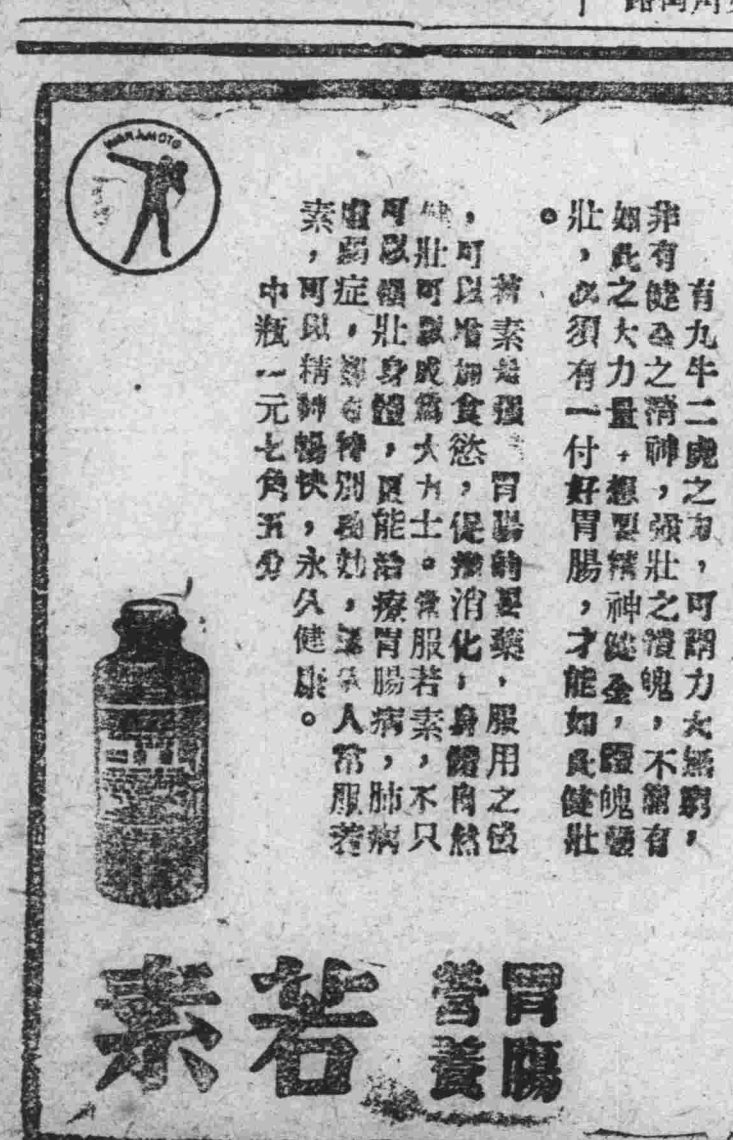 有九牛二虎之力，可謂力大無窮，
非有健全之精神，強壯之體魄，不能有
如此之大力量，想要精神健全，體魄強
壯，必須有一付好胃腸，才能如此健壯
。
若素是強 胃腸的要藥，服用之後
，可以增加食慾，促進消化，身體自然
健壯可以成為大力士。常服若素，不只
可以強壯身體，更能治療胃腸病，肺病
虛弱症，都有特別功効， 人常服若
素，可以精神暢快，永久健康。
中瓶一元七角五分
WAKAMOTO
胃腸
營養
若素